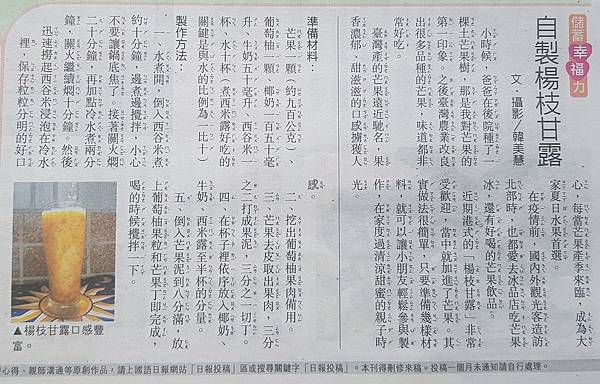 儲蓄幸福力
自製楊枝甘露
文・攝影／韓美慧
小時候，爸爸在後院種了一
棵土芒果樹，那是我對芒果的
第一印象。之後臺灣農業改良
出很多品種的芒果，味道都非
常好吃。
臺灣產的芒果遠近馳名，果
香濃郁、甜滋滋的口感擄獲人
心，每當芒果產季來臨，成為大
家夏日水果首選。
在疫情前，國內外觀光客造訪
北部時，也都愛去冰品店吃芒果
冰，還有好喝的芒果飲品。
近期港式的「楊枝甘露」非常
受歡迎，當中就加進了芒果。其
實做法很簡單，只要準備幾樣材
料，就可以讓小朋友輕鬆參與製
作，在家度過清涼甜蜜的親子時
光。
準備材料：
芒果一顆（約九百公克）、
葡萄柚一顆、椰奶一百五十毫
升、牛奶五十毫升、西谷米一
杯、水十杯（煮西米露好吃的
關鍵是與水的比例為一比十）
製作方法：
一、水煮滾，倒入西谷米煮
約十分鐘，邊煮邊攪拌，小心
不要讓鍋底焦了。接著關火燜
二十分鐘，再加點冷水煮兩分
鐘，關火繼續燜十分鐘，然後
迅速撈起西谷米浸泡在冷水
裡，保存粒粒分明的好口
感。
二、挖出葡萄柚果肉備用。
三、芒果去皮取出果肉，三分
之二打成果泥，三分之一切丁。
四、在杯子裡依序放入椰奶、
牛奶、西米露至半杯的分量。
五、倒入芒果泥到八分滿，放
上葡萄柚果粒和芒果丁即完成，
喝的時候攪拌一下。
▲楊枝甘露口感豐
富。
心得、親師溝通等原創作品，請上國語日報網站「日報投稿」區或搜尋關鍵字「日報投稿」。＊本刊得刪修來稿。投稿一個月未通知請自行處理。